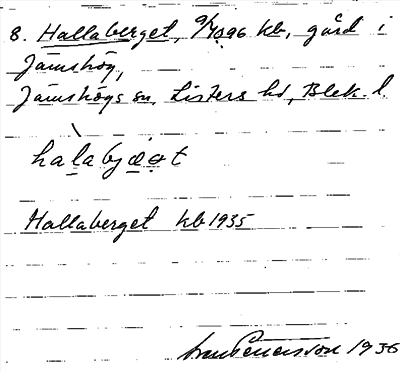 8. Hallaberget, 9/4096 kb, gård i
Jämshög,
Jämshögs sn, Listers hd, Blek. l.
halabjæ̨ət
Hallaberget kb 1935
1936